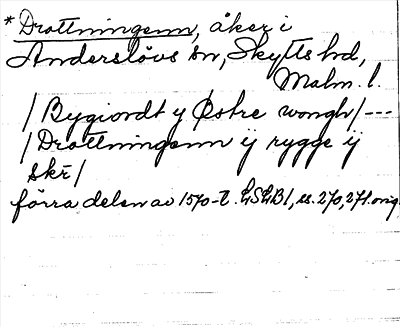 * Drottningenn, åker i
Anderslövs sn, Skytts hd,
Malm. l.
/ Bygiordt y Østre wongh / ---
/ Drottningenn ij rygge ij
skr̄ /
förra delen av 1570-t. LSLB1, ss. 270, 271. orig.